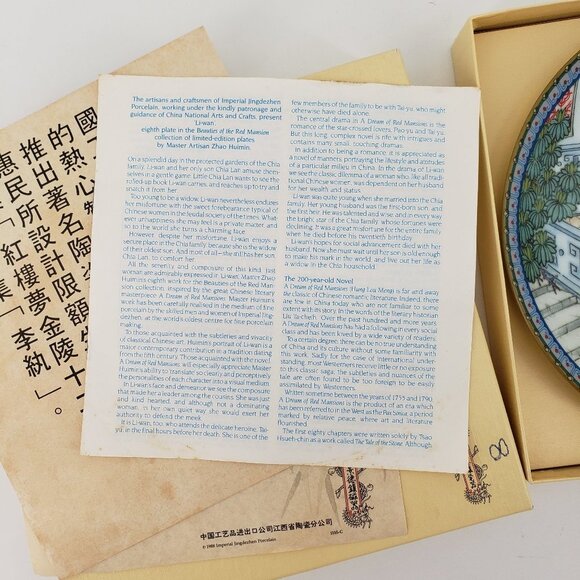 The artisans and craftsmen of Imperial Jingdezhen
Porcelain, working under the kindly patronage and
guidance of China National Arts and Crafts, present
Li-wan,
eighth plate in the Beauties of the Red Mansion
collection of limited-edition plates
by Master Artisan Zhao Huimin.
On a splendid day in the protected gardens of the Chia
family, Li-wan and her only son Chia Lan amuse them-
selves in a gentle game. Little Chia Lan wants to see the
rolled-up book Li-wan carries, and reaches up to try and
snatch it from her.
Too young to be a widow, Li-wan nevertheless endures
her misfortune with the sweet forbearance typical of
Chinese women in the feudal society of the times. What-
ever unhappiness she may feel is a private matter, and
so to the world she turns a charming face.
However, despite her misfortune, Li-wan enjoys a
secure place in the Chia family, because she is the widow
of their oldest son. And most of all—she still has her son,
Chia Lan, to comfort her.
All the serenity and composure of this kind, just
woman are admirably expressed in Li-wan, Master Zhao
Huimin's eighth work for the Beauties of the Red Man-
sion collection, inspired by the great Chinese literary
masterpiece A Dream of Red Mansions. Master Huimin's
work has been carefully realised in the medium of fine
porcelain by the skilled men and women of Imperial Jing-
dezhen, at the world's oldest centre for fine porcelain
making.
To those acquainted with the subtleties and vivacity
of classical Chinese art, Huimin's portrait of Li-wan is a
major contemporary contribution in a tradition dating
from the 8th century. Those acquainted with the novel,
A Dream of Red Mansions will especially appreciate Master
Huimin's ability to translate so clearly and perceptively
the personalities of each character into a visual medium.
In Li-wan's face and demeanour we see the composure
that made her a leader among the cousins. She was just
and kind hearted, and although not a dominating
woman, in her own quiet way she would meet her
authority to defend the meek.
It is Li-wan, too, who attends the delicate heroine, Tai-
yu, in the final hours before her death. She is one of the
few members of the family to be with Tai-yu, who might
otherwise have died alone.
The central drama in A Dream of Red Mansions is the
romance of the star-crossed lovers, Pao-yu and Tai-yu.
But this long, complex novel is rife with intrigues and
contains many small, touching dramas.
In addition to being a romance, it is appreciated as
a novel of manners, portraying the lifestyle and attitudes
of a particular milieu in China. In the drama of Li-wan
we see the classic dilemma of a woman who, like all tradi-
tional Chinese women, was dependent on her husband
for her wealth and status.
Li-wan was quite young when she married into the Chia
family. Her young husband was the first-born son, and
the first heir. He was talented and wise, and in every way
the bright star of the Chia family, whose fortunes were
declining. It was a great misfortune for the entire family
when he died before his twentieth birthday.
Li-wan's hopes for social advancement died with her
husband. Now she must wait until her son is old enough
to make his mark in the world, and live out her life as
a widow in the Chia household.
The 200-year-old Novel
A Dream of Red Mansions (Hung Lou Meng) is far and away
the classic of Chinese romantic literature. Indeed, there
are few in China today who are not familiar to some
extent with its story. In the words of the literary historian
Liu Ta-Chieh, 'Over the past hundred and more years
A Dream of Red Mansions has had a following in every social
class and has been loved by a wide variety of readers'.
To a certain degree, there can be no true understanding
of China and its culture without some familiarity with
this work. Sadly, for the cause of international under-
standing, most Westerners receive little or no exposure
to this classic saga. The subtleties and nuances of the
tale are often found to be too foreign to be easily
assimilated by Westerners.
Written sometime between the years of 1755 and 1790
A Dream of Red Mansions is the product of an era which
has been referred to in the West as the Pax Sinica, a period
marked by relative peace, where art and literature
flourished.
The first eighty chapters were written solely by Tsao
Hsueh-chin as a work called The Tale of the Stone. Although
的熱心
推出著名陶
惠民所設計限額
「紅樓夢金陵十二
」李紈」。
中国工艺品进出口公司江西省陶瓷分公司
© 1988 Imperial Jingdezhen Porcelain
8